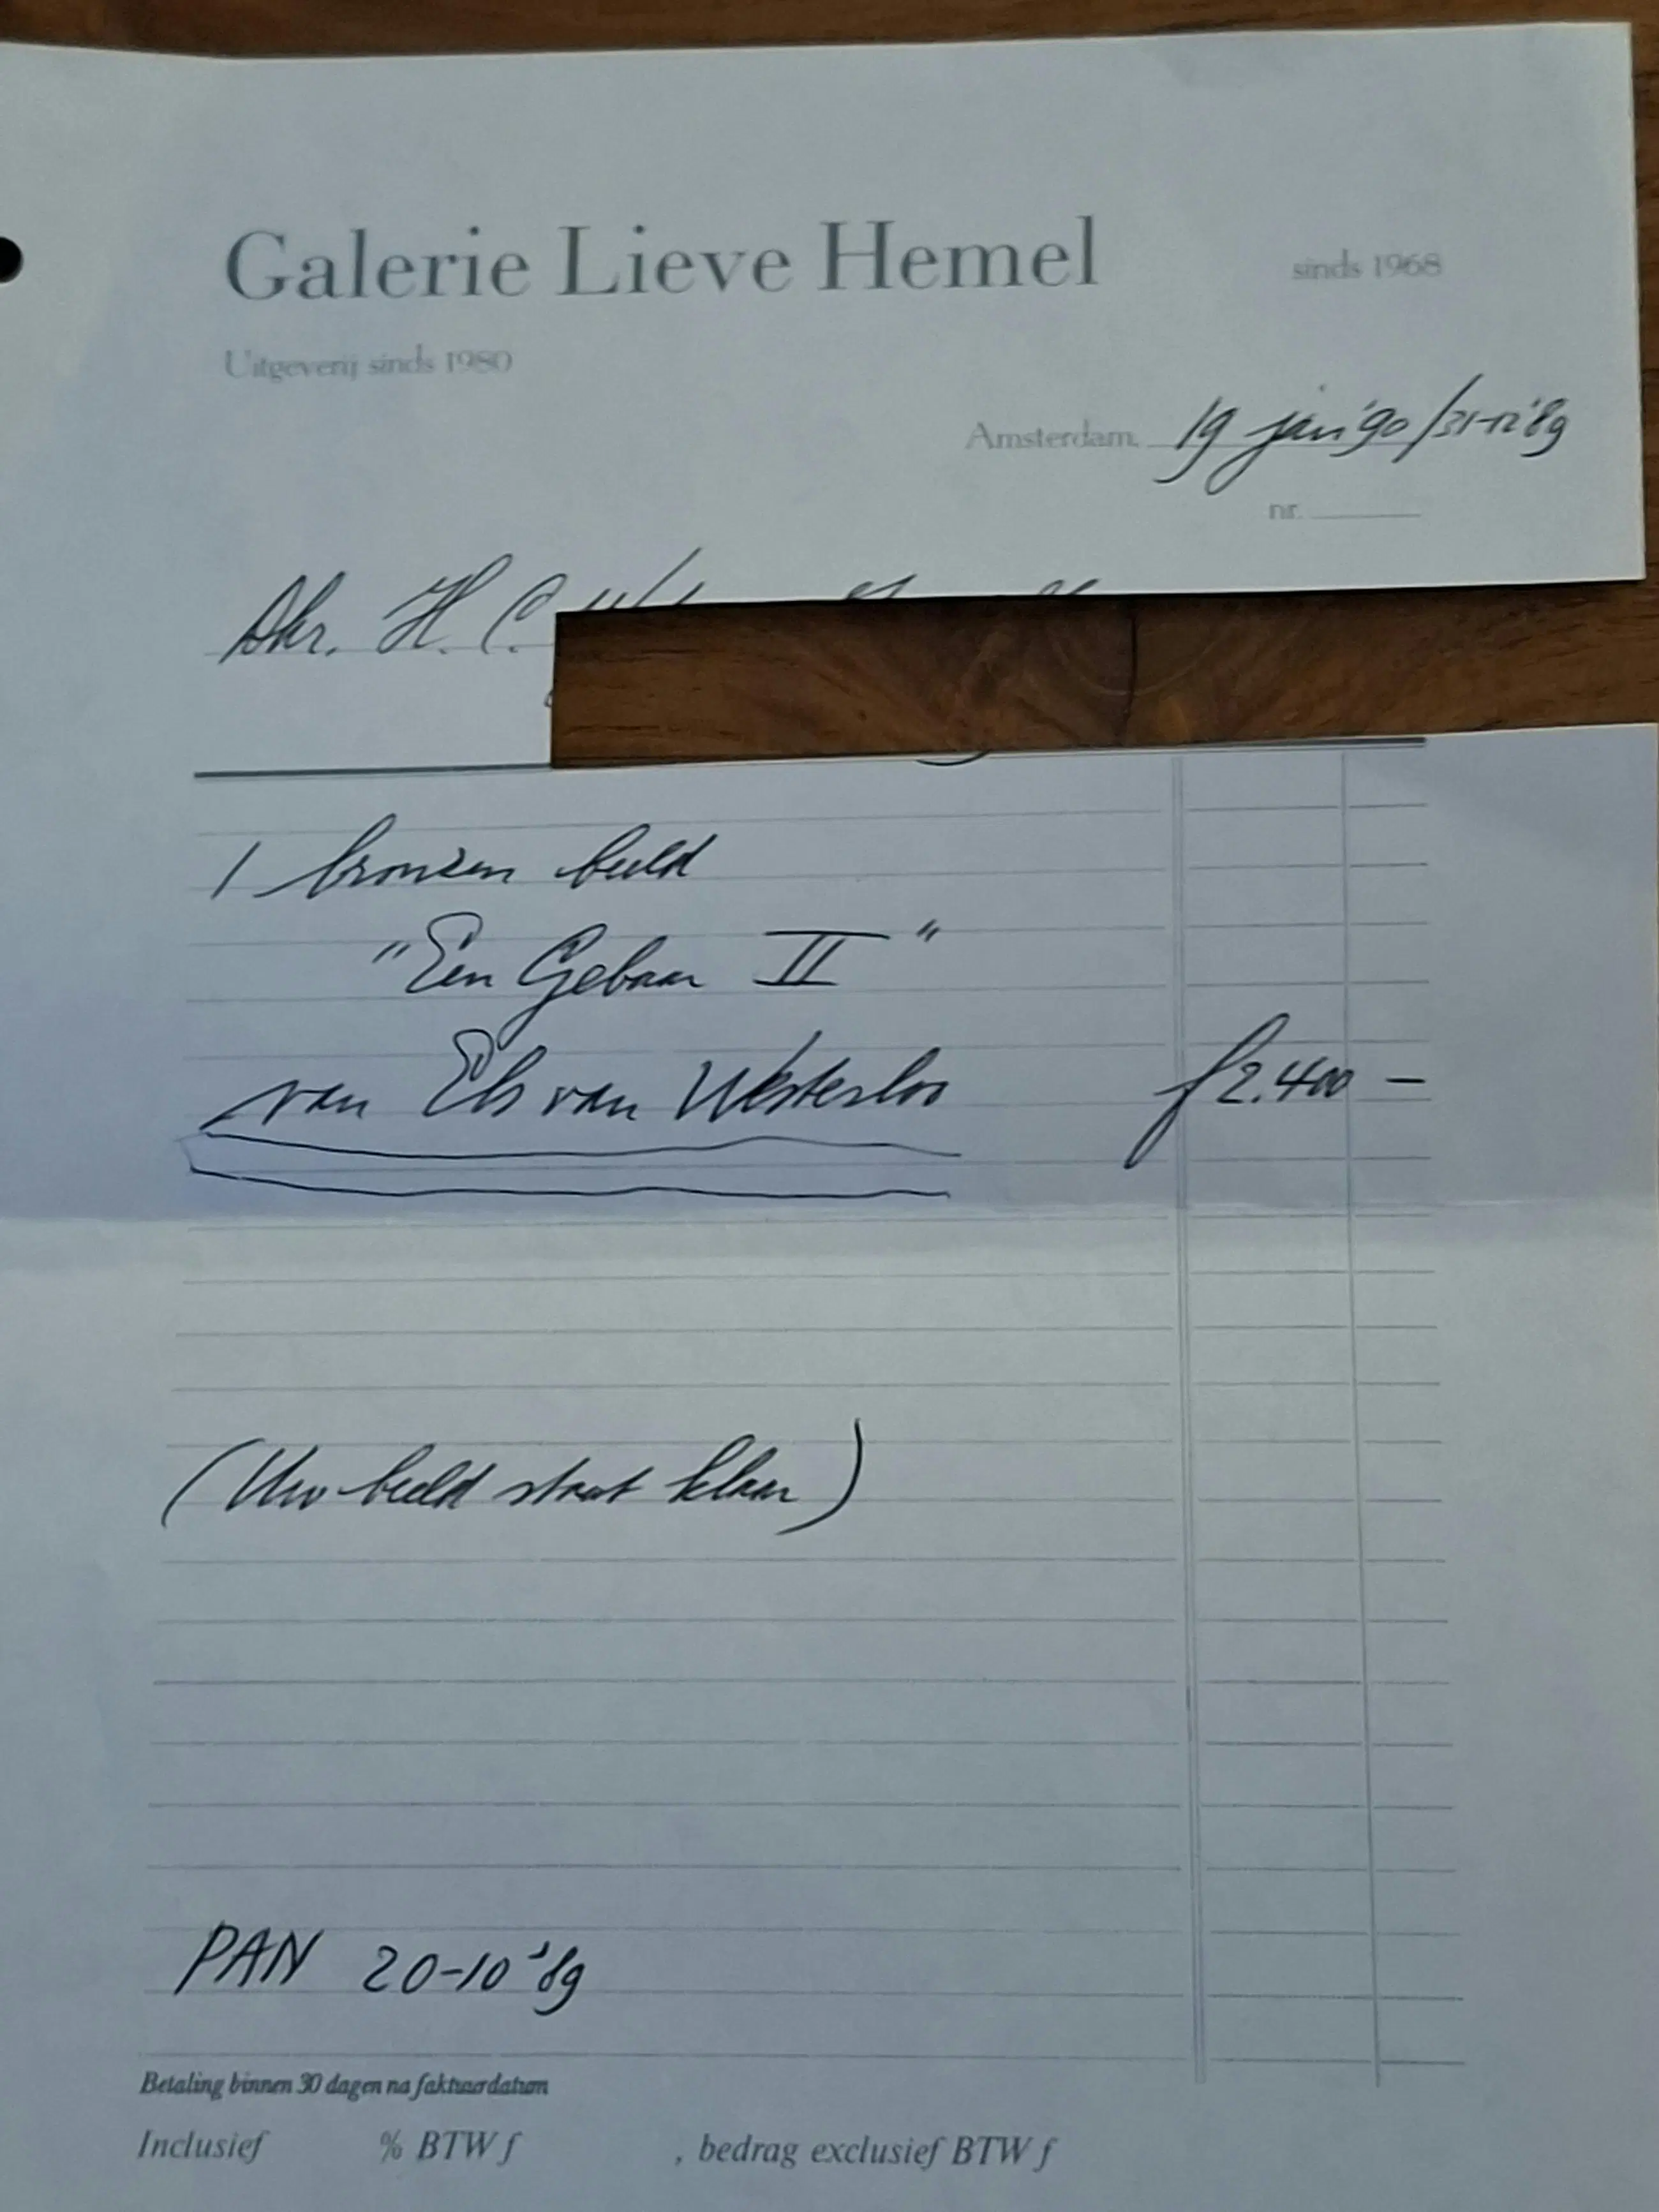 Galerie Lieve Hemel
sinds 1968
Uitgeverij sinds 1980
Amsterdam, 19 jan '90 / 31-12 '89
nr.
Dhr. H. C.
1 bronzen beeld
"Een Gebaar II"
van Els van Westerloo f 2.400 —
(Uw beeld staat klaar)
PAN 20-10 '89
Betaling binnen 30 dagen na faktuurdatum
Inclusief % BTW f , bedrag exclusief BTW f